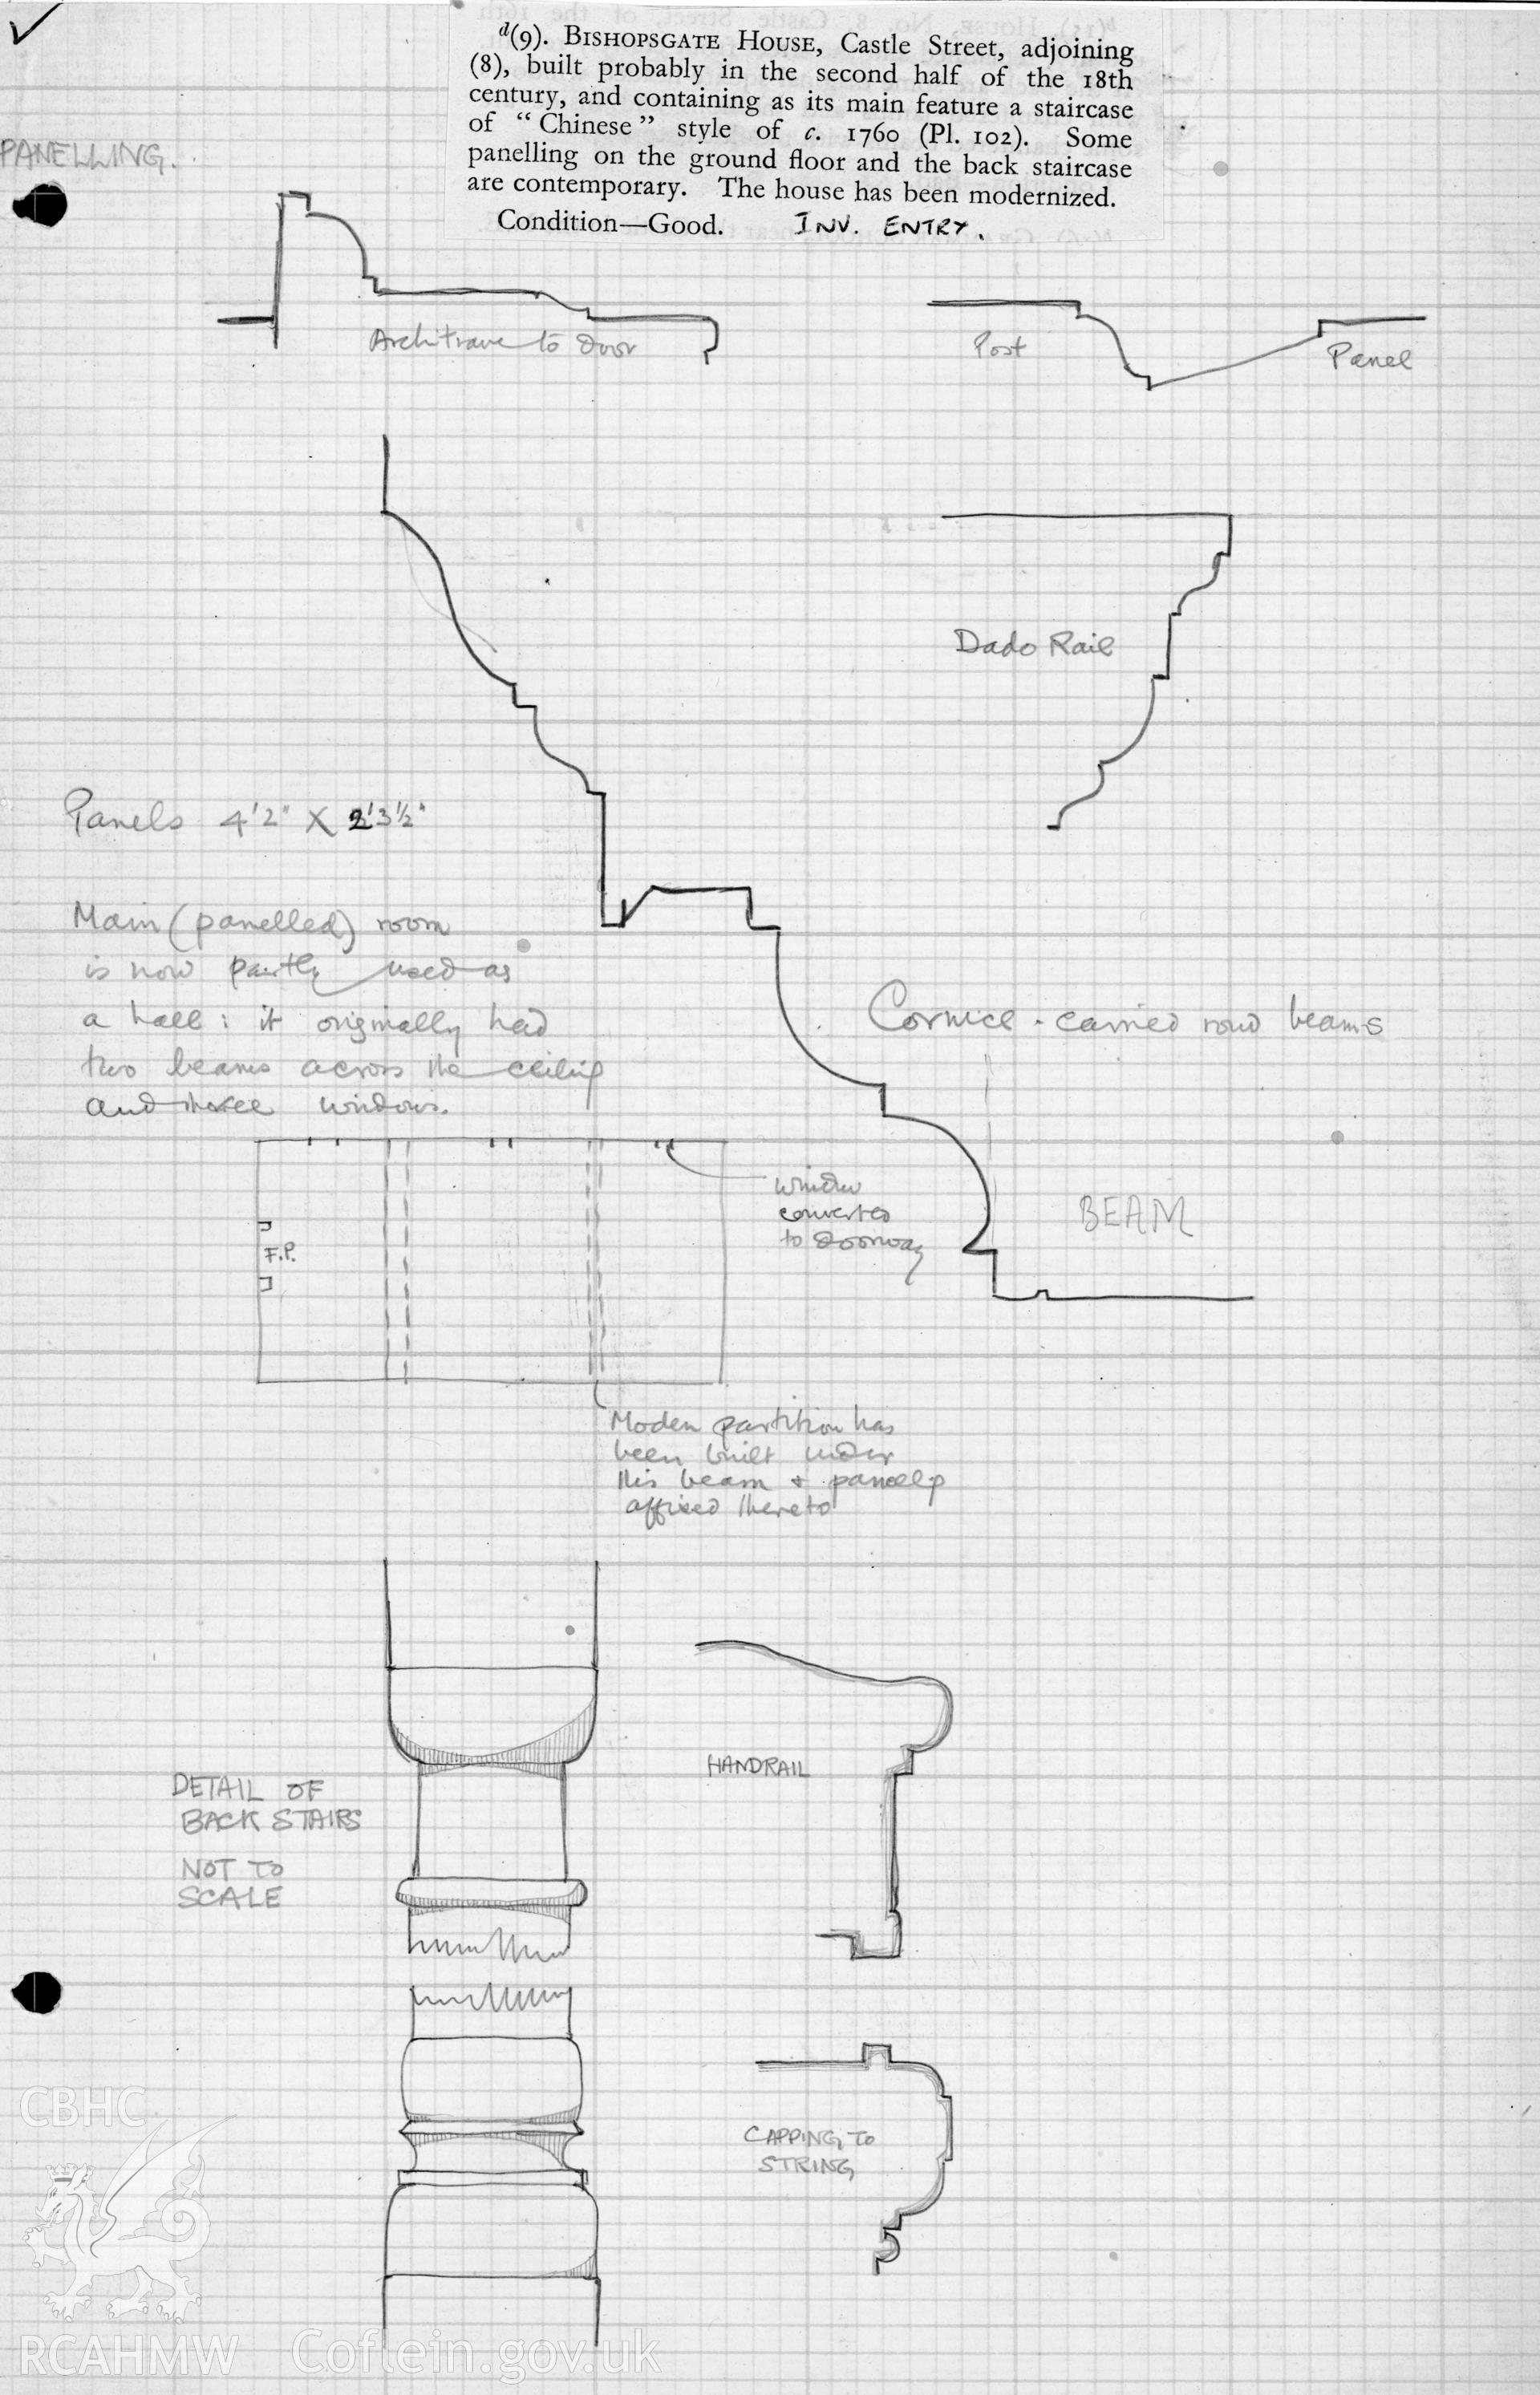 d(9). BISHOPSGATE HOUSE, Castle Street, adjoining
(8), built probably in the second half of the 18th
century, and containing as its main feature a staircase
of “Chinese” style of c. 1760 (Pl. 102). Some
panelling on the ground floor and the back staircase
are contemporary. The house has been modernized.
Condition—Good. INV. ENTRY.
PANELLING.
Architrave to door
Post
Panel
Dado Rail
Panels 4'2" X 2'3½"
Main (panelled) room
is now partly used as
a hall: it originally had
two beams across the ceiling
and three windows.
Cornice - carried round beams
window
converted
to doorway
BEAM
F.P.
Modern partition has
been built under
this beam + panellg
affixed thereto
HANDRAIL
DETAIL OF
BACK STAIRS
NOT TO
SCALE
CAPPING TO
STRING
CBHC
RCAHMW Coflein.gov.uk